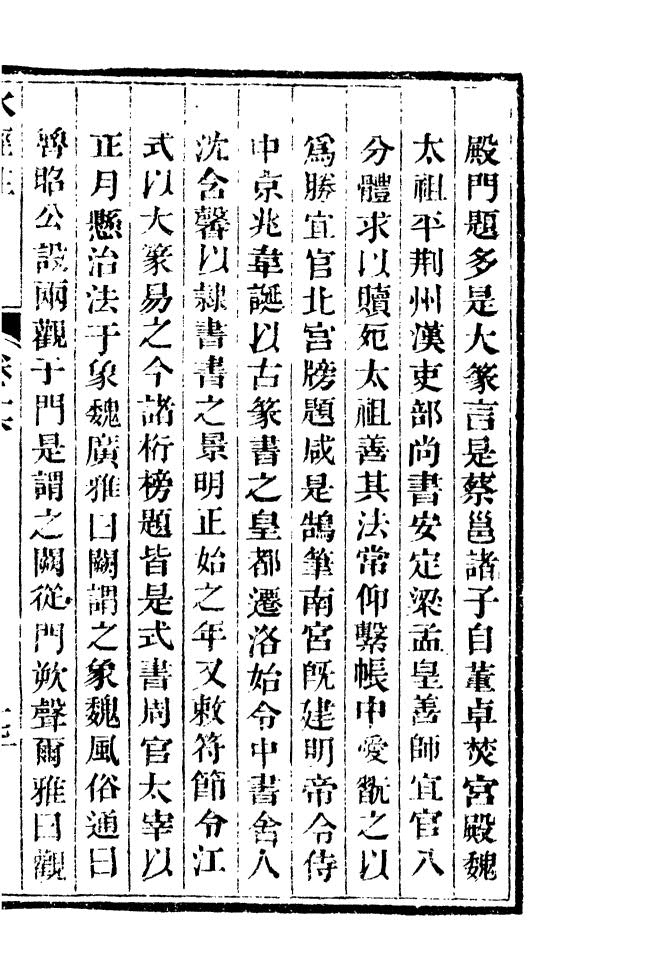 殿門題多是大篆言是蔡邕諸子自董卓焚宮殿魏
太祖平荆州漢吏部尚書安定梁孟皇善師宜官八
分體求以贖死太祖善其法常仰繫帳中愛翫之以
爲勝宜官北宮牓題咸是鵠筆南宮旣建明帝令侍
中京兆韋誕以古篆書之皇都遷洛始令中書舍人
沈含馨以隸書書之景明正始之年又敕符節令江
式以大篆易之今諸桁榜題皆是式書周官太宰以
正月懸治法于象魏廣雅曰闕謂之象魏風俗通曰
魯昭公設兩觀于門是謂之闕從門欮聲爾雅曰觀